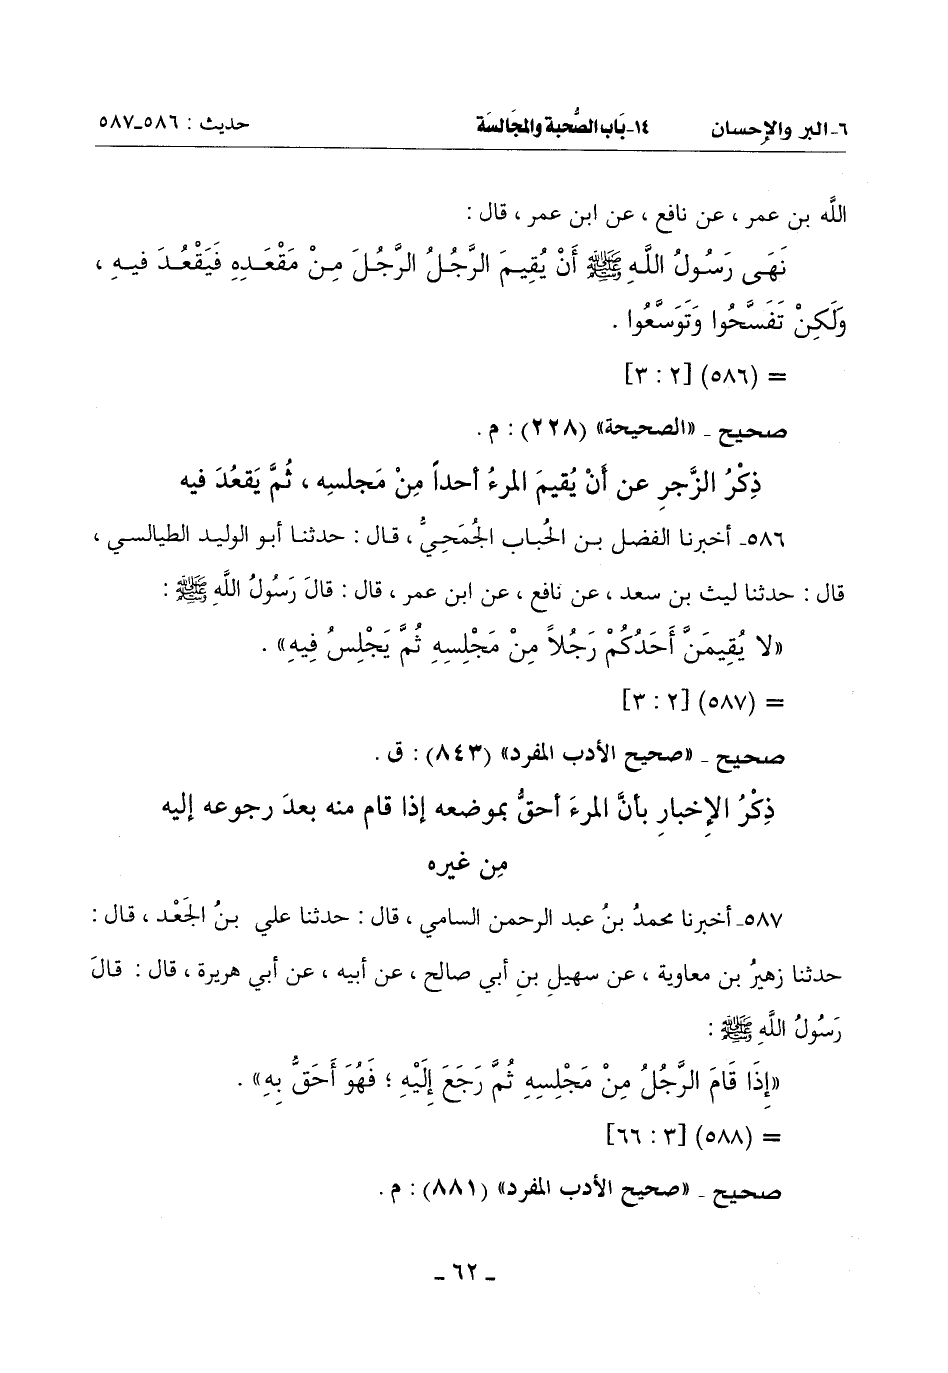 ٦- البر والإحسان ١٤- بَاب الصُّحبة والمجَالسَة حديث : ٥٨٦-٥٨٧
اللَّه بن عمر ، عن نافع ، عن ابن عمر ، قال :
نَهَى رَسُولُ اللَّهِ ﷺ أَنْ يُقِيمَ الرَّجُلُ الرَّجُلَ مِنْ مَقْعَدِهِ فَيَقْعُدَ فِيهِ ،
وَلَكِنْ تَفَسَّحُوا وَتَوَسَّعُوا .
= (٥٨٦) [٢ : ٣]
صحيح ـ «الصحيحة» (٢٢٨) : م .
ذِكْرُ الزَّجرِ عن أَنْ يُقيمَ المرءُ أحداً مِنْ مَجلسِه ، ثُمَّ يَقعُدَ فيه
٥٨٦ـ أخبرنا الفضل بـن الحُباب الجُمَحِيُّ ، قـال : حدثنـا أبـو الوليـد الطيالسـي ،
قال : حدثنا ليث بن سعد ، عن نافع ، عن ابن عمر ، قال : قالَ رَسُولُ اللَّهِ ﷺ :
«لا يُقِيمَنَّ أَحَدُكُمْ رَجُلاً مِنْ مَجْلِسِهِ ثُمَّ يَجْلِسُ فِيهِ» .
= (٥٨٧) [٢ : ٣]
صحيح ـ «صحيح الأدب المفرد» (٨٤٣) : ق .
ذِكْرُ الإخبارِ بأنَّ المرءَ أحقُّ بموضعه إذا قام منه بعدَ رجوعه إليه
مِن غيره
٥٨٧ـ أخبرنا محمدُ بنُ عبد الرحمن السامي ، قال : حدثنا علي بنُ الجَعْد ، قال :
حدثنا زهيرُ بن معاوية ، عن سهيلِ بنِ أبي صالح ، عن أبيه ، عن أبي هريرة ، قال : قالَ
رَسُولُ اللَّهِ ﷺ :
«إِذَا قَامَ الرَّجُلُ مِنْ مَجْلِسِهِ ثُمَّ رَجَعَ إِلَيْهِ ؛ فَهُوَ أَحَقُّ بِهِ» .
= (٥٨٨) [٣ : ٦٦]
صحيح ـ «صحيح الأدب المفرد» (٨٨١) : م .
ـ ٦٢ ـ